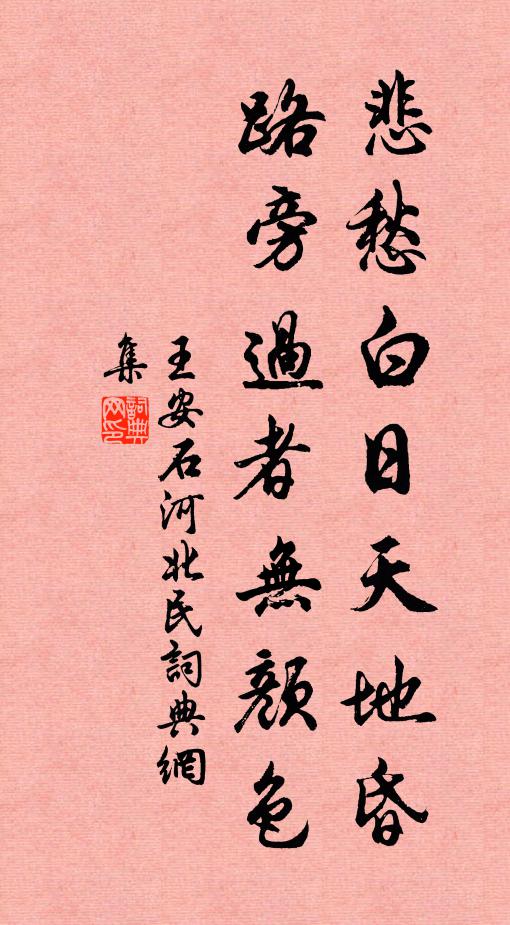 悲愁白日天地昏
路旁過者無顏色
王安石河北民詞典網
集
詞典網印